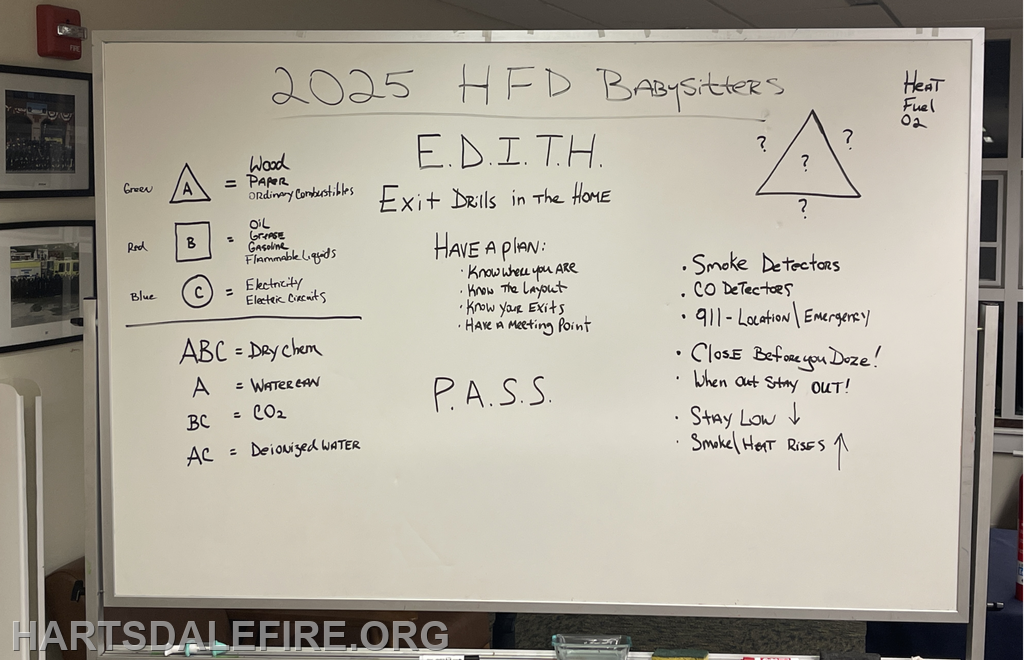 FIRE
2025 HFD Babysitters
Heat
Fuel
O2
E.D.I.T.H.
Exit Drills in The Home
Green A = Wood
Paper
Ordinary Combustibles
Red B = Oil
Grease
Gasoline
Flammable Liquids
Blue C = Electricity
Electric Circuits
ABC = Dry Chem
A = Water can
BC = CO2
AC = Deionized Water
Have a plan:
· Know where you are
· Know The Layout
· Know your Exits
· Have a Meeting Point
P.A.S.S.
? ?
?
?
· Smoke Detectors
· CO Detectors
· 911 - Location\Emergency
· Close Before you Doze!
· When out stay OUT!
· Stay Low ↓
· Smoke\Heat Rises ↑
HARTSDALEFIRE.ORG